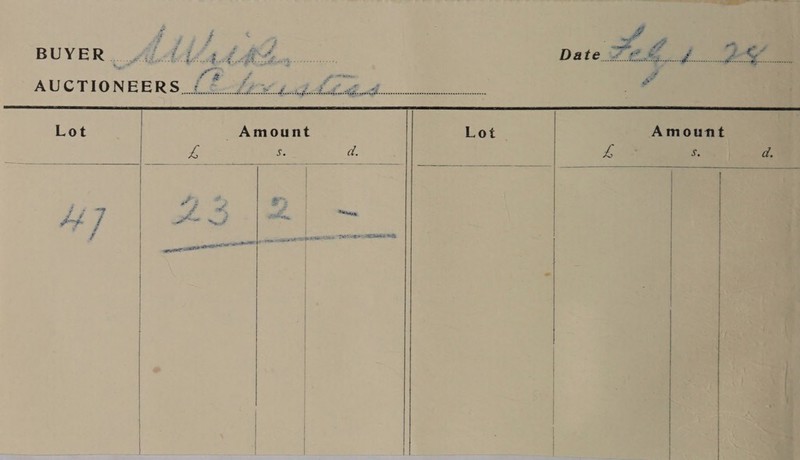 BUYER A Wilkes Date Feb 1 28
AUCTIONEERS Christies
Lot Amount Lot Amount
£ s. d. £ s. d.
47 23 2 -